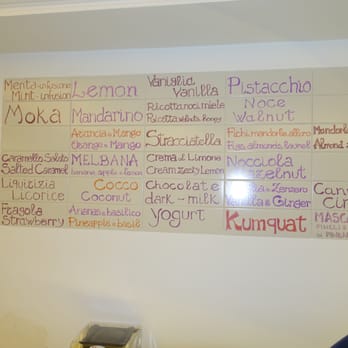 Menta-infusione
Mint-infusion
Lemon
Vaniglia
Vanilla
Pistacchio
Moka
Mandarino
Ricotta noci miele
Ricotta walnuts honey
Noce
Walnut
Arancia e Mango
Orange e Mango
Stracciatella
Fichi mandorle alloro
Figs, almonds, laurel
Mandorl
Almond
Caramello Salato
Salted Caramel
MELBANA
banana apple e lemon
Crema al Limone
Cream zesty Lemon
Nocciola
Hazelnut
Liquitizia
Licorice
Cocco
Coconut
Chocolate
dark - milk
a e Zenzero
Vanilla e Ginger
Can
Cin
Fragola
Strawberry
Ananas e basilico
Pineapple e basil
yogurt
Kumquat
MASC
PINOLI